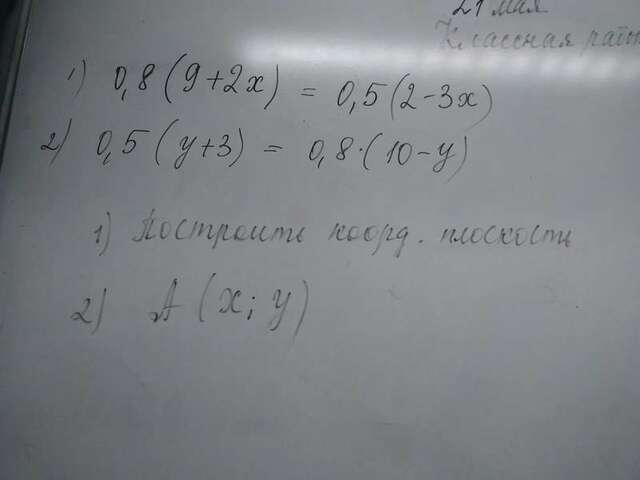 21 мая
Классная рабо
1) 0,8(9+2x) = 0,5(2-3x)
2) 0,5(y+3) = 0,8·(10-y)
1) Построить коорд. плоскость
2) A(x; y)